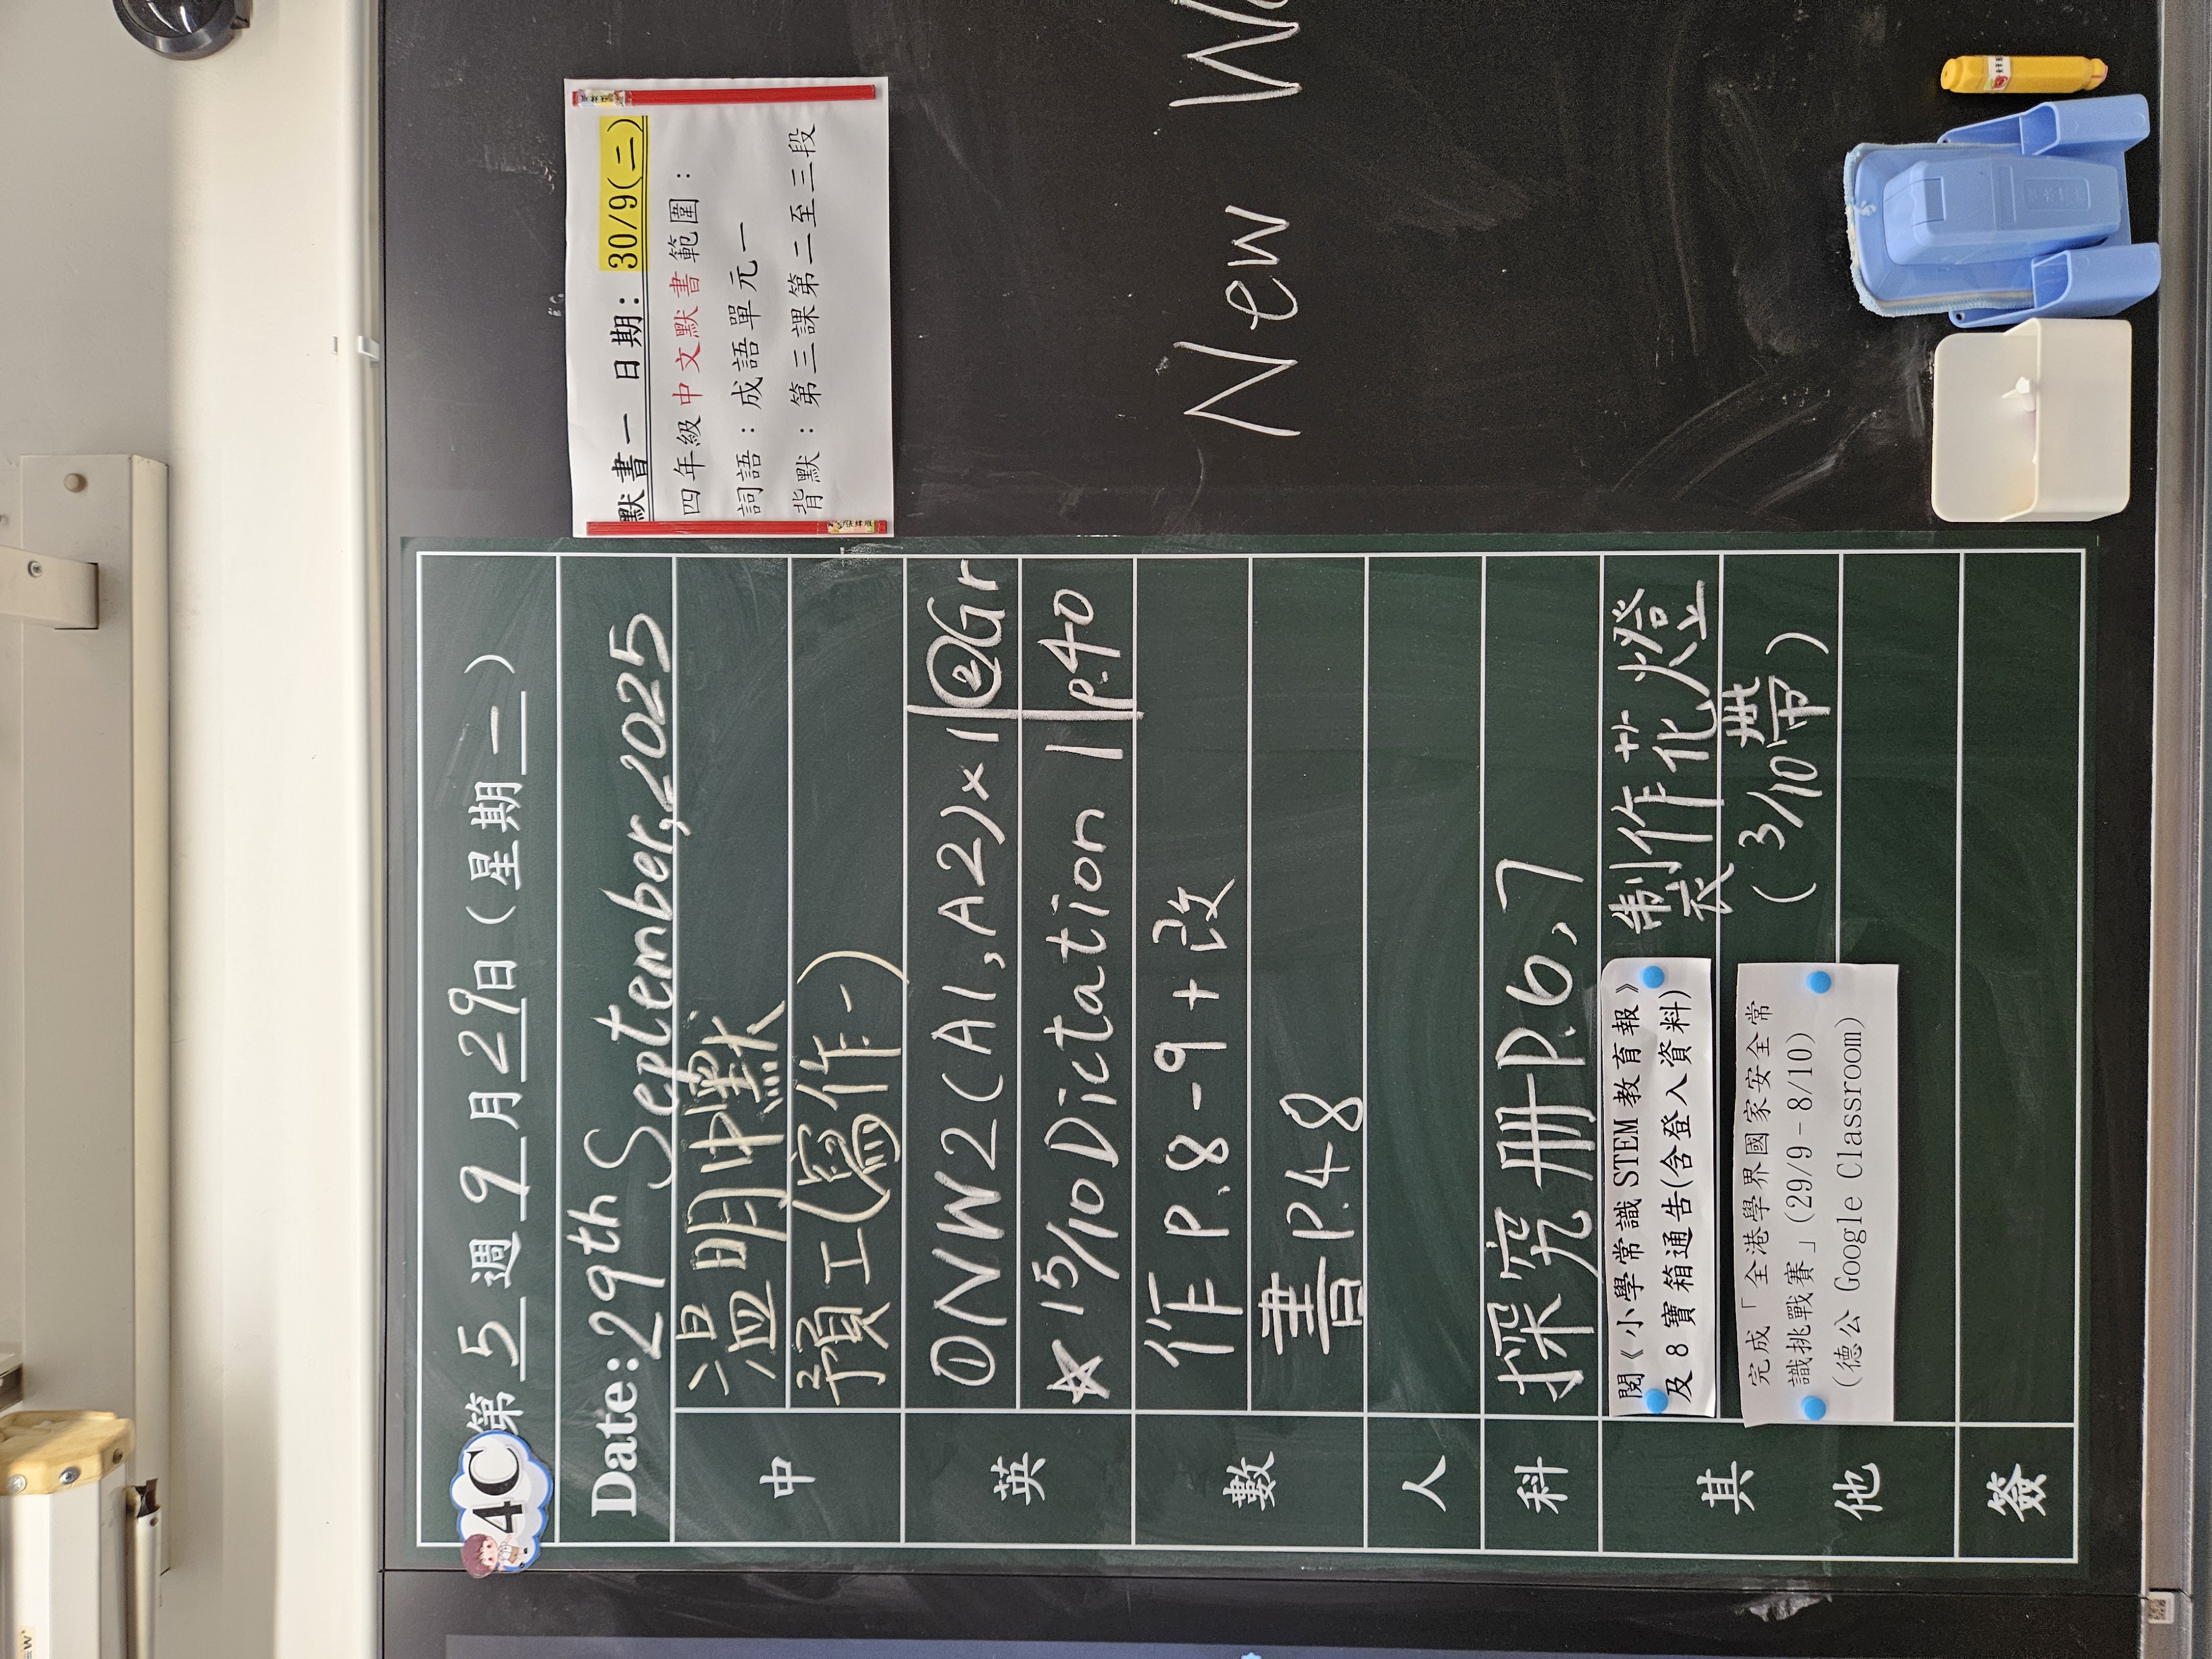 4C
第 5 週 9 月 29 日 (星期 一 )
Date: 29th September, 2025
中
溫明中默
預工(寫作一)
英
①NW2(A1,A2)×1
②Gr
☆15/10 Dictation 1
p.40
數
作 P.8-9+改
書 P.48
人
科
探究冊P.6,7
其他
閱《小學常識 STEM 教育報》
及 8 寶箱通告(含登入資料)
完成「全港學界國家安全常
識挑戰賽」(29/9–8/10)
(德公 Google Classroom)
製作花燈
(3/10帶)
簽
默書一 日期: 30/9(二)
四年級中文默書範圍:
詞語:成語單元一
背默:第三課第二至三段
New